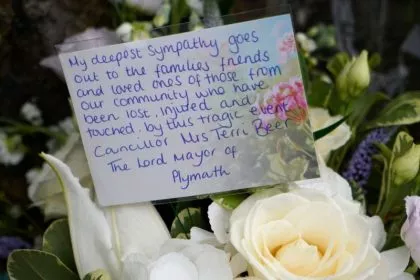 My deepest sympathy goes
out to the families, friends
and loved ones of those from
our community who have
been lost, injured and
touched by this tragic event
Councillor Mrs Terri Beer
The Lord Mayor of
Plymouth